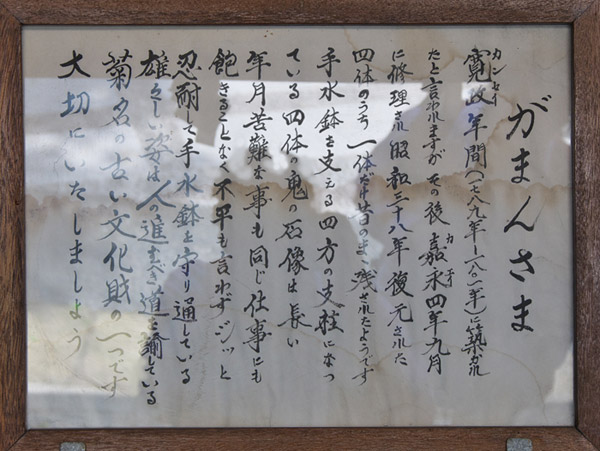 がまんさま
寛政年間(一七八九年ー一八〇一年)に築かれ
カンセイ
たと言われますが その後 嘉永四年九月
カ エイ
に修理され 昭和三十八年復元された
四体のうち 一体だけ昔のまゝ残されたようです
手水鉢を支える四方の支柱になつ
ている四体の鬼の石像は 長い
年月苦難な事も同じ仕事にも
飽きることなく不平も言わず ジッと
忍耐して手水鉢を守り通している
雄々しい姿は人の進むべき道を諭している
菊名の古い文化財の一つです
大切にいたしましよう